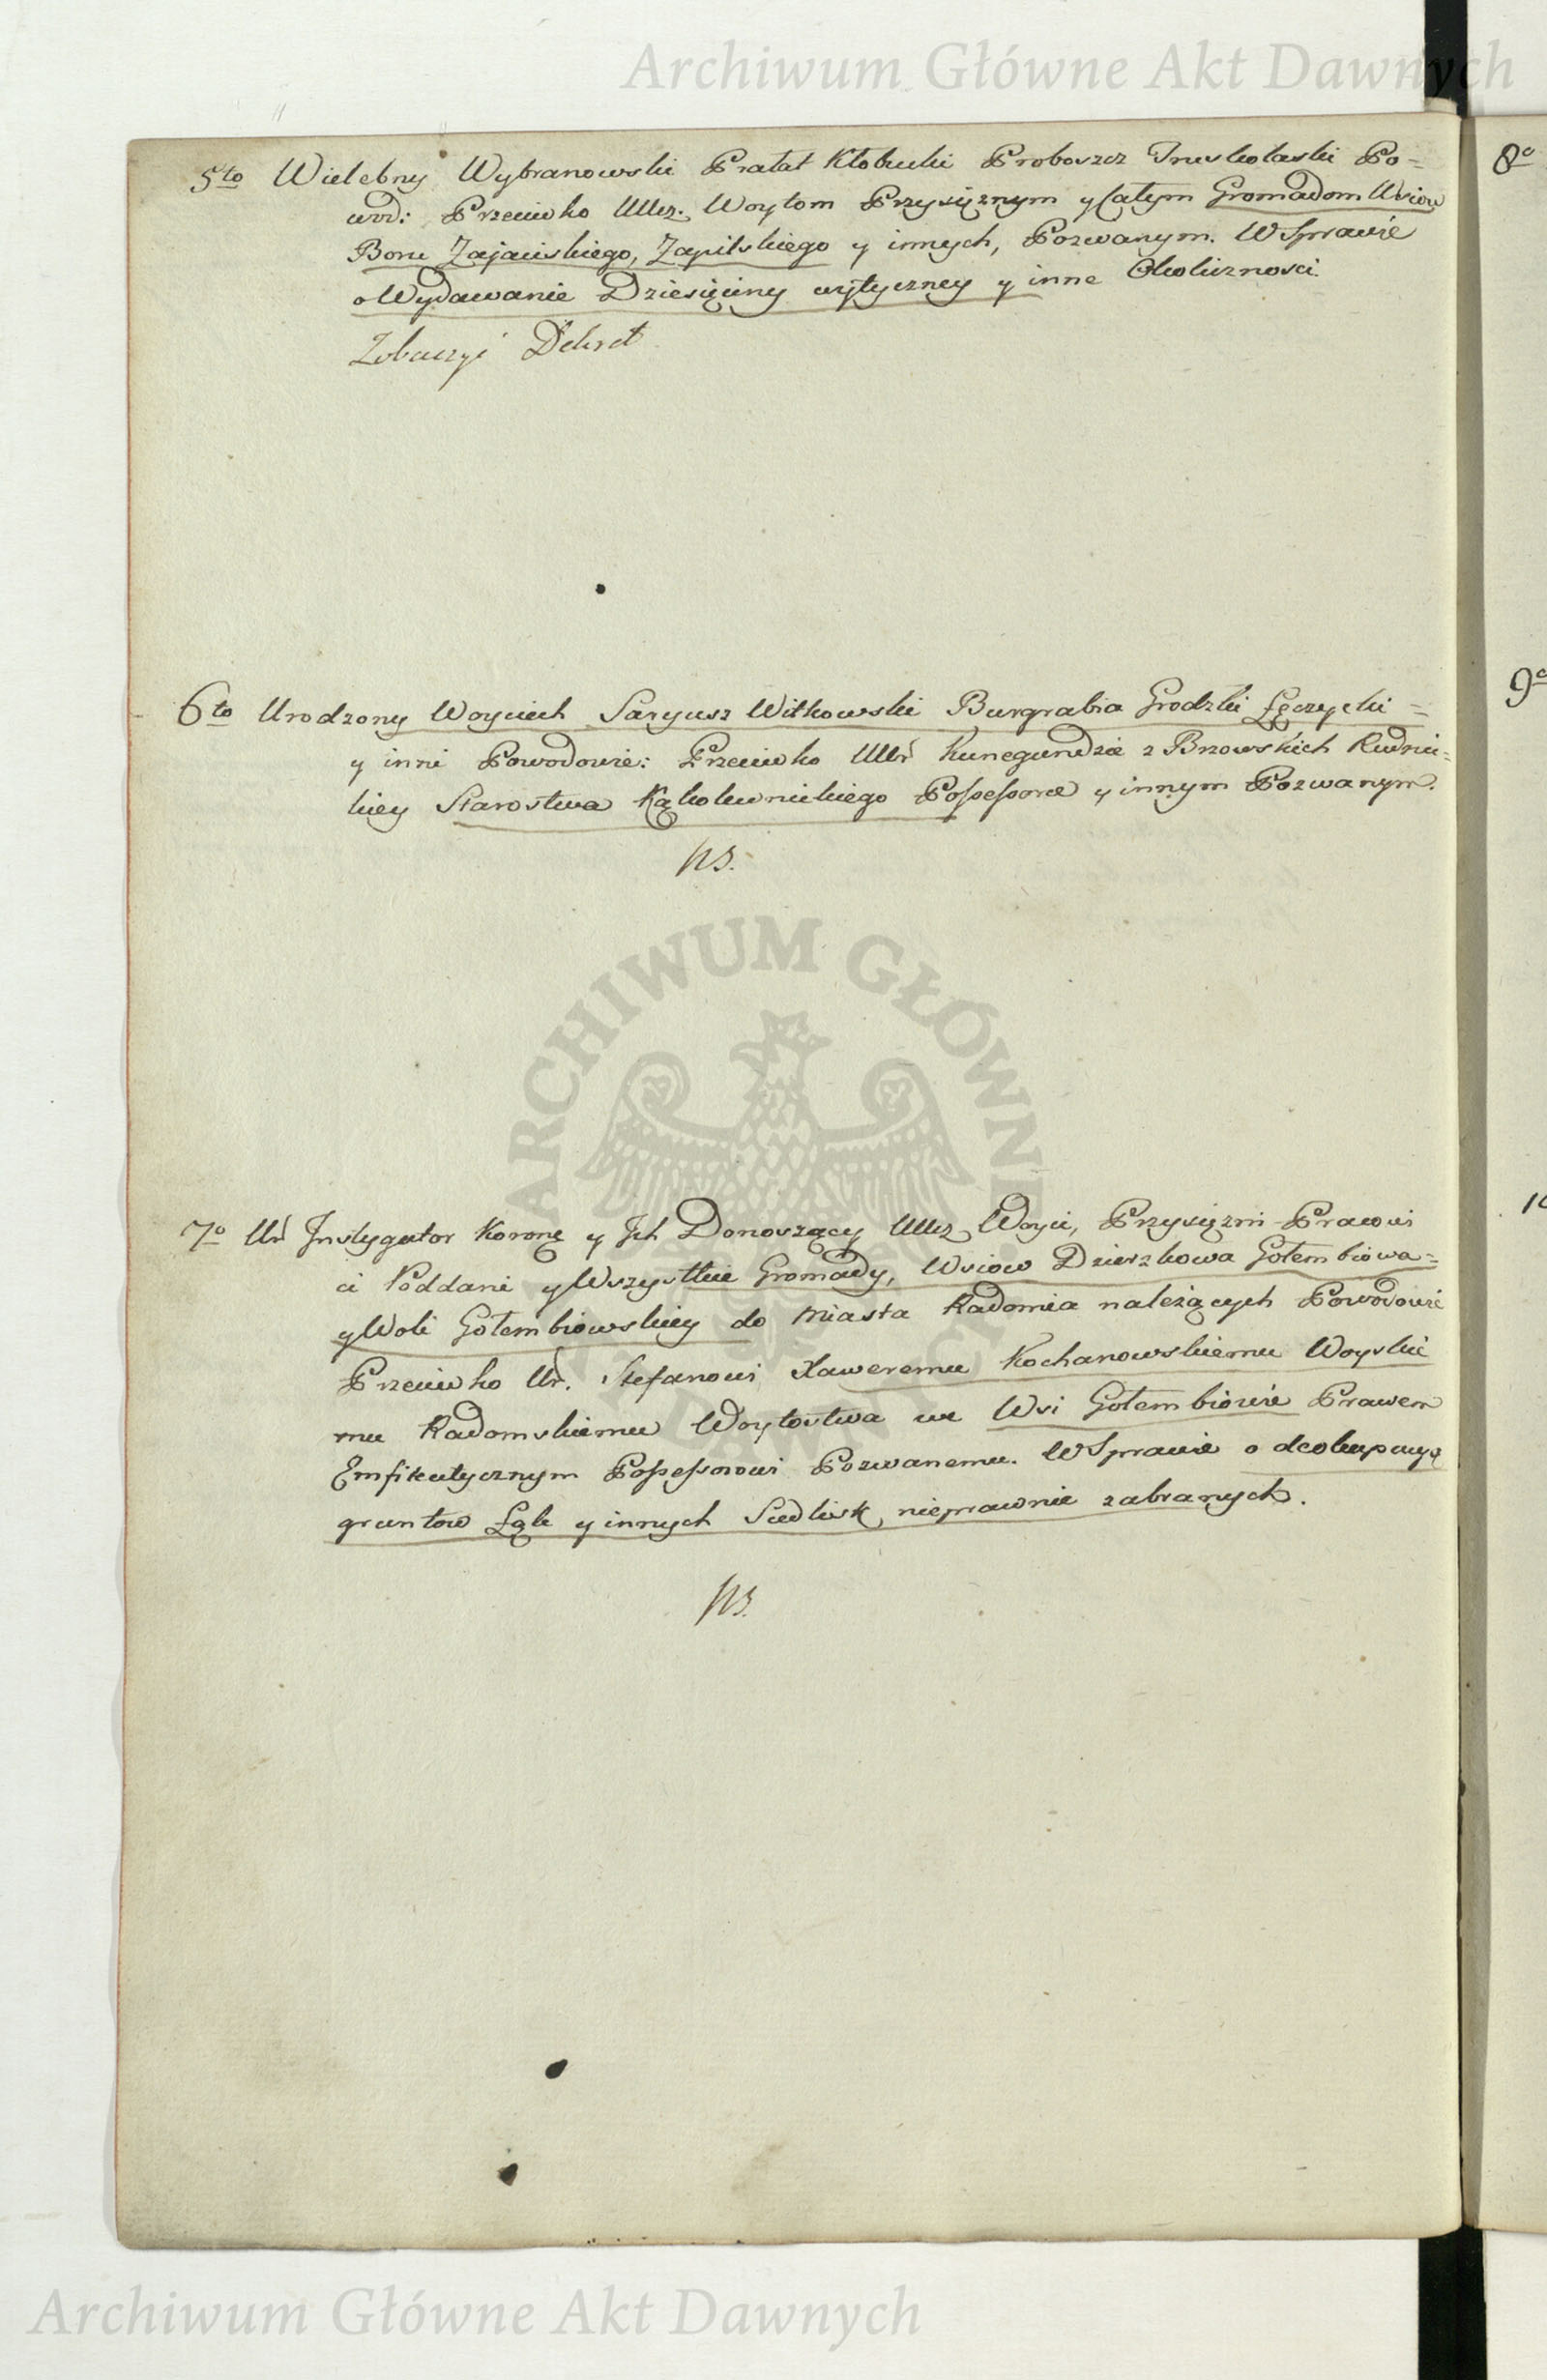 Archiwum Główne Akt Dawnych
5to Wielebny Wybranowski Prałat Kłobucki Proboszcz Truskolaski Po-
wod: Przeciwko UUcz. Woytom Przysięznym y Całym Gromadom Wsiow
Boru Zajacińskiego, Zapilskiego y innych, Pozwanym. W Sprawie
o Wydawanie Dziesięciny wytyczney y inne Okoliczności.
Zobaczyć Dekret
6to Urodzony Woyciech Saryusz Witkowski Burgrabia Grodzki Łęczycki =
y inni Powodowie: Przeciwko Ur Kunegundzie z Brzowskich Rudnic=
kiey Starostwa Kąkolewnickiego Possessorce y innym Pozwanym.
NB.
7o Ur Instygator Koronę y Ich Donoszący UUcz Woyci, Przysięzni Pracowi
ci Poddani y Wszystkie Gromady, Wsiow Dzierzkowa Gołembiowa=
y Woli Gołembiowskiey do Miasta Radomia należących Powodowie
Przeciwko Ur. Stefanowi Xaweremu Kochanowskiemu Woyskie
mu Radomskiemu Woytostwa we Wsi Gołembiowie Prawem
Emfiteutycznym Possessorowi Pozwanemu. W Sprawie o deokupacyą
gruntow Łąk y innych Siedlisk, nieprawnie zabranych.
NB.
8o
9o
10
ARCHIWUM GŁÓWNE AKT DAWNYCH
Archiwum Główne Akt Dawnych